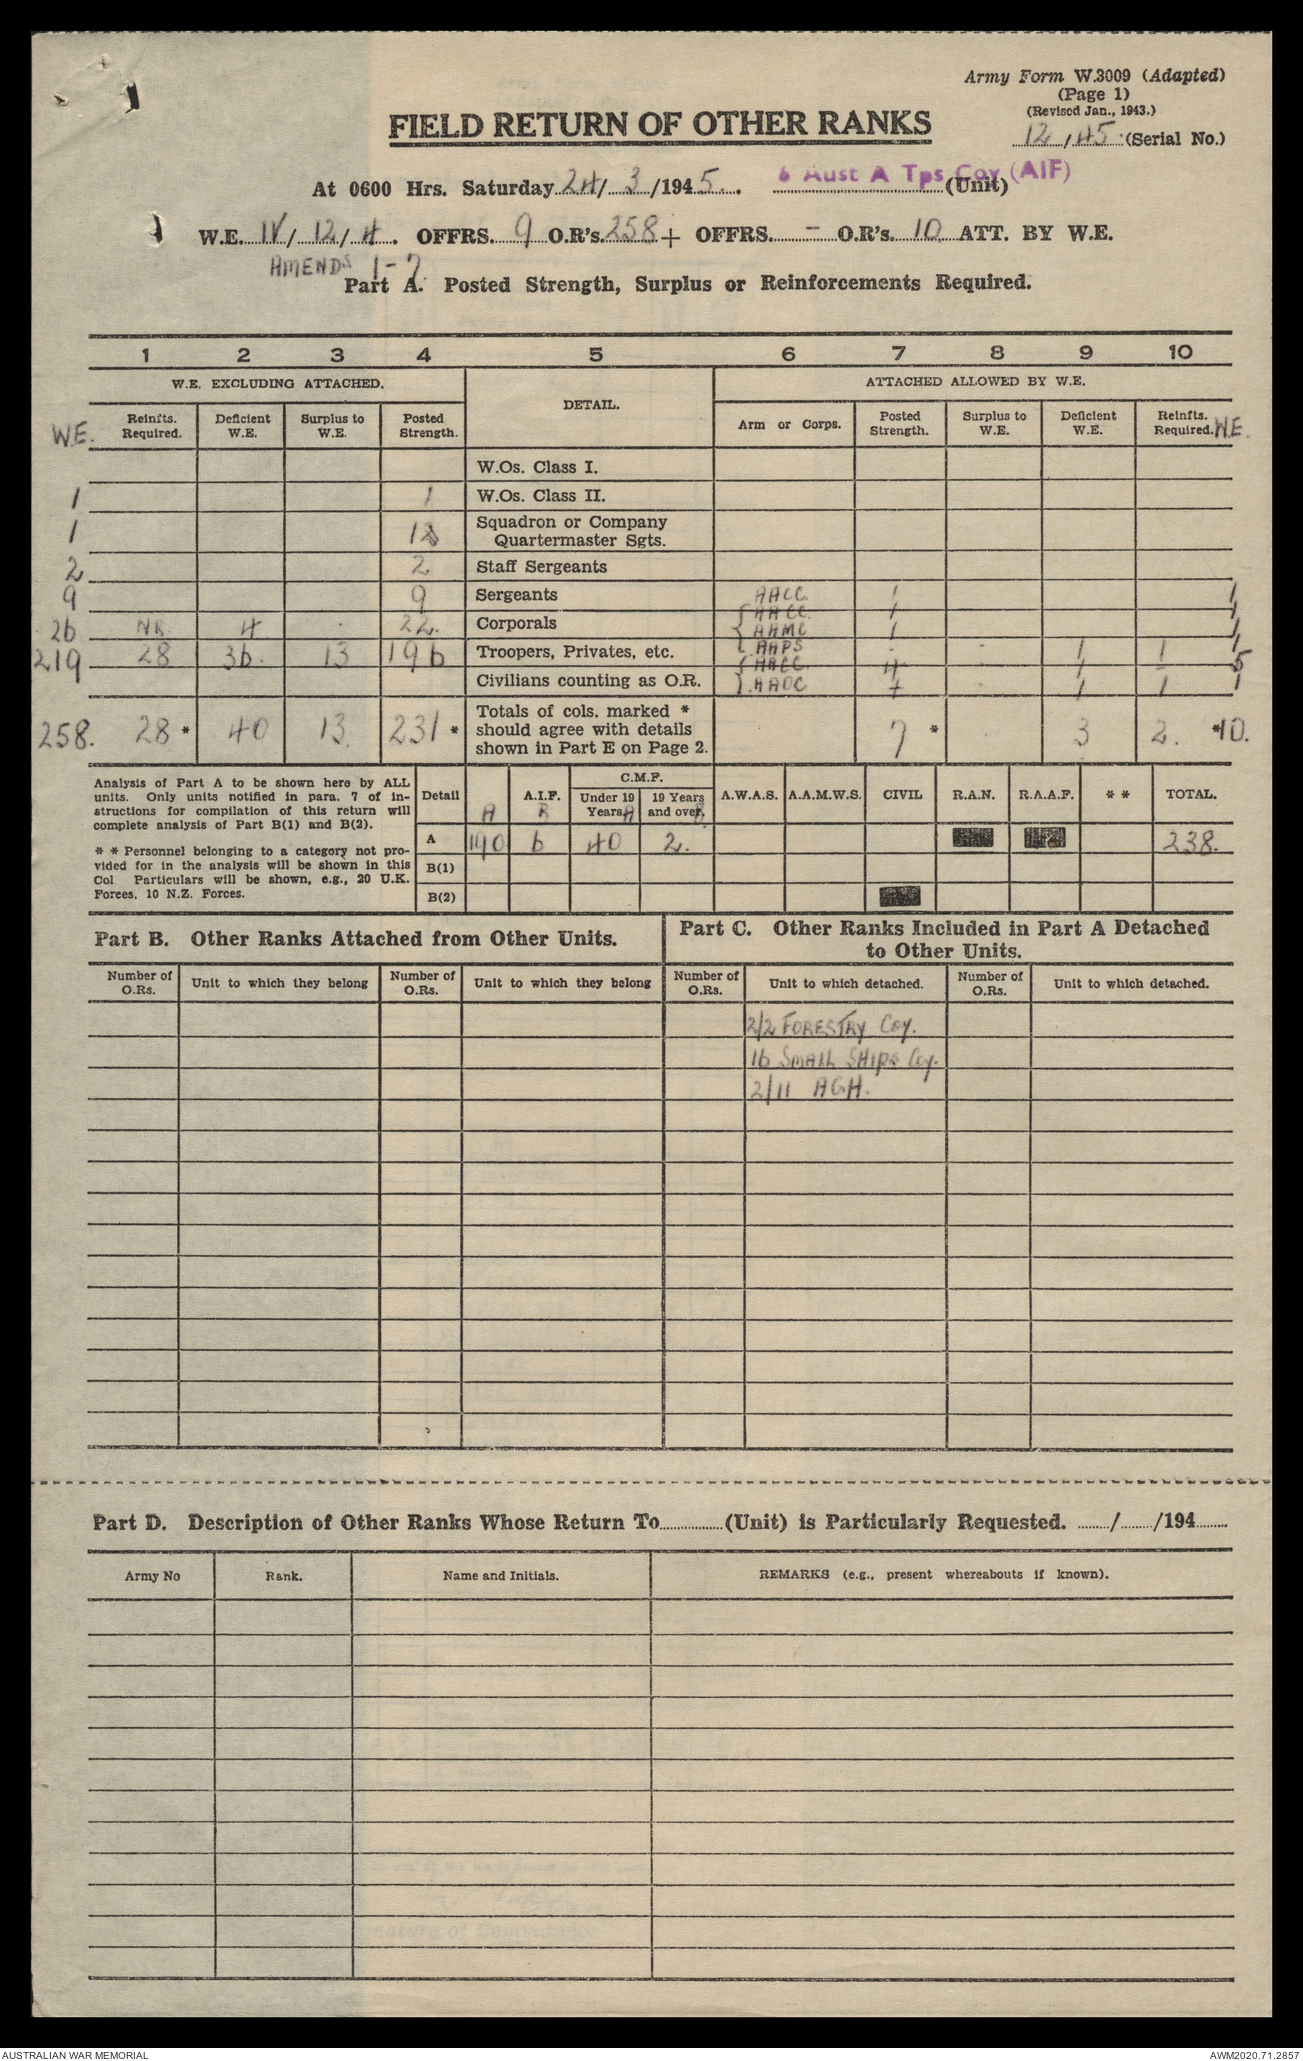 Army Form W.3009 (Adapted)
(Page 1)
(Revised Jan., 1943.)
12/45 (Serial No.)
FIELD RETURN OF OTHER RANKS
At 0600 Hrs. Saturday 24/3/1945. 6 Aust A Tps Coy (AIF) (Unit)
W.E. IV/12/4. OFFRS. 9 O.R's. 258 + OFFRS. - O.R's. 10 ATT. BY W.E.
AMENDS 1-7
Part A. Posted Strength, Surplus or Reinforcements Required.
1 2 3 4 5 6 7 8 9 10
W.E. EXCLUDING ATTACHED. DETAIL. ATTACHED ALLOWED BY W.E.
W.E. Reinfts. Required. Deficient W.E. Surplus to W.E. Posted Strength. Arm or Corps. Posted Strength. Surplus to W.E. Deficient W.E. Reinfts. Required. W.E.
W.Os. Class I.
1 1 W.Os. Class II.
1 Squadron or Company Quartermaster Sgts.
2 2 Staff Sergeants
9 9 Sergeants AACC 1 1
26 NR 4 - 22. Corporals AACC. 1 1
AAMC 1 1
219 28 36. 13 196 Troopers, Privates, etc. AAPS - - 1 1 1
Civilians counting as O.R. AACC 4 1 5
AAOC - 1 1 1
258. 28 * 40 13. 231 * Totals of cols. marked * should agree with details shown in Part E on Page 2. 7 * 3 2. *10.
Analysis of Part A to be shown here by ALL
units. Only units notified in para. 7 of in-
structions for compilation of this return will
complete analysis of Part B(1) and B(2).
* * Personnel belonging to a category not pro-
vided for in the analysis will be shown in this
Col Particulars will be shown, e.g., 20 U.K.
Forces, 10 N.Z. Forces.
Detail A A.I.F. B C.M.F. Under 19 Years A 19 Years and over. B A.W.A.S. A.A.M.W.S. CIVIL R.A.N. R.A.A.F. * * TOTAL.
A 190 6 40 2. 238.
B(1)
B(2)
Part B. Other Ranks Attached from Other Units.
Part C. Other Ranks Included in Part A Detached
to Other Units.
Number of O.Rs. Unit to which they belong Number of O.Rs. Unit to which they belong Number of O.Rs. Unit to which detached. Number of O.Rs. Unit to which detached.
2/2 FORESTRY Coy.
16 SMALL SHIPS Coy.
2/11 AGH.
Part D. Description of Other Ranks Whose Return To (Unit) is Particularly Requested. / /194
Army No Rank. Name and Initials. REMARKS (e.g., present whereabouts if known).
AUSTRALIAN WAR MEMORIAL AWM2020.71.2857